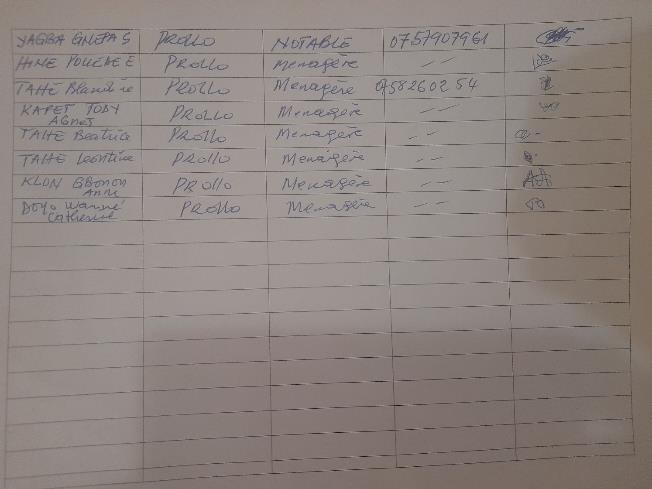 YAGBA GNEPA S PROLLO NOTABLE 0757907961
HINE POUEDE E PROLLO Menagère -- 
TAHE Blandine PROLLO Menagère 0758260254
KAPET TOBY AGNES PROLLO Menagère --
TAHE Beatrice PROLLO Menagère --
TAHE Leontine PROLLO Menagère --
KLON GBONON Anne PROLLO Menagère --
DOYO Wanné Catherine PROLLO Menagère --